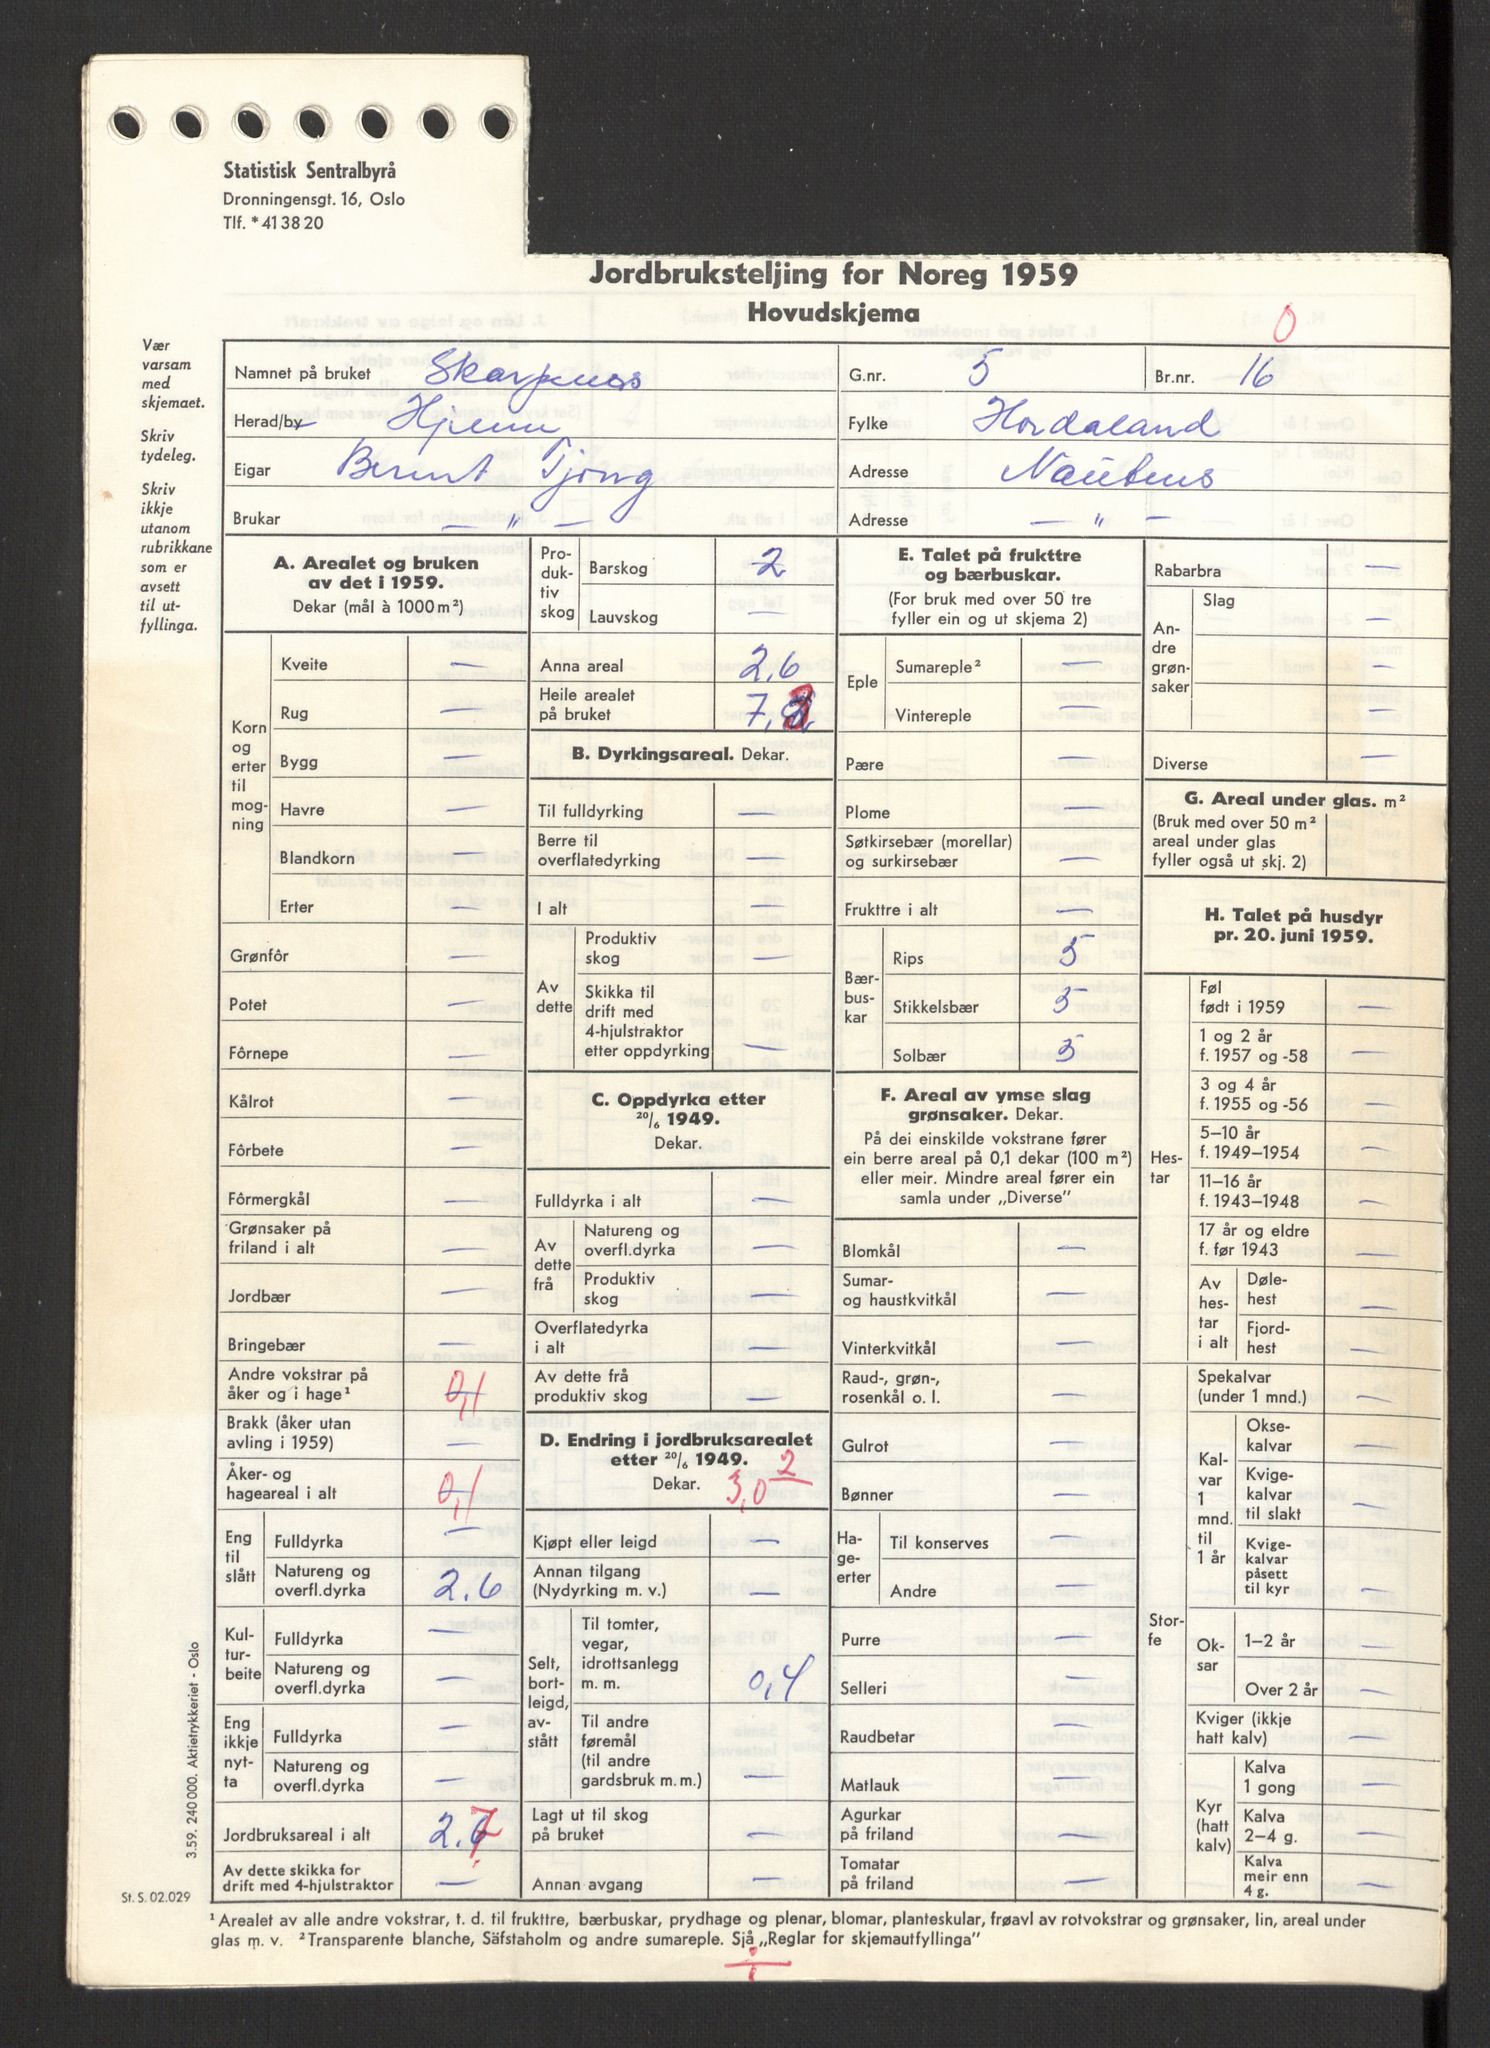 Statistisk Sentralbyrå
Dronningensgt. 16, Oslo
Tlf. *41 38 20
Jordbruksteljing for Noreg 1959
Hovudskjema
0
Vær
varsam
med
skjemaet.
Skriv
tydeleg.
Skriv
ikkje
utanom
rubrikkane
som er
avsett
til ut-
fyllinga.
Namnet på bruket Skarpnes G.nr. 5 Br.nr. 16
Herad/by Fylke Hordaland
Eigar Bernt Tjong Adresse
Brukar — " — Adresse — " —
A. Arealet og bruken
av det i 1959.
Dekar (mål à 1000 m²)
Korn
og
erter
til
mog-
ning
Kveite —
Rug —
Bygg —
Havre —
Blandkorn —
Erter —
Grønfôr —
Potet —
Fôrnepe —
Kålrot —
Fôrbete —
Fôrmergkål —
Grønsaker på
friland i alt —
Jordbær —
Bringebær —
Andre vokstrar på
åker og i hage¹ 0,1
Brakk (åker utan
avling i 1959) —
Åker- og
hageareal i alt 0,1
Eng
til
slått
Fulldyrka —
Natureng og
overfl.dyrka 2.6
Kul-
tur-
beite
Fulldyrka —
Natureng og
overfl.dyrka —
Eng
ikkje
nyt-
ta
Fulldyrka —
Natureng og
overfl.dyrka —
Jordbruksareal i alt 2.7
Av dette skikka for
drift med 4-hjulstraktor —
Pro-
duk-
tiv
skog
Barskog 2
Lauvskog —
Anna areal 2.6
Heile arealet
på bruket 7,3
B. Dyrkingsareal. Dekar.
Til fulldyrking —
Berre til
overflatedyrking —
I alt —
Av
dette
Produktiv
skog —
Skikka til
drift med
4-hjulstraktor
etter oppdyrking —
C. Oppdyrka etter
20/6 1949.
Dekar.
Fulldyrka i alt —
Av
dette
frå
Natureng og
overfl.dyrka —
Produktiv
skog —
Overflatedyrka
i alt —
Av dette frå
produktiv skog —
D. Endring i jordbruksarealet
etter 20/6 1949.
Dekar. 3,0 2
Kjøpt eller leigd —
Annan tilgang
(Nydyrking m. v.) —
Selt,
bort-
leigd,
av-
stått
Til tomter,
vegar,
idrottsanlegg
m. m. 0,4
Til andre
føremål
(til andre
gardsbruk m. m.) —
Lagt ut til skog
på bruket —
Annan avgang —
E. Talet på frukttre
og bærbuskar.
(For bruk med over 50 tre
fyller ein og ut skjema 2)
Eple
Sumareple² —
Vintereple —
Pære —
Plome —
Søtkirsebær (morellar)
og surkirsebær —
Frukttre i alt —
Bær-
bus-
kar
Rips 5
Stikkelsbær 5
Solbær 5
F. Areal av ymse slag
grønsaker. Dekar.
På dei einskilde vokstrane fører
ein berre areal på 0,1 dekar (100 m²)
eller meir. Mindre areal fører ein
samla under „Diverse”
Blomkål —
Sumar-
og haustkvitkål —
Vinterkvitkål —
Raud-, grøn-,
rosenkål o. l. —
Gulrot —
Bønner —
Ha-
ge-
erter
Til konserves —
Andre —
Purre —
Selleri —
Raudbetar —
Matlauk —
Agurkar
på friland —
Tomatar
på friland —
Rabarbra —
An-
dre
grøn-
saker
Slag
—
—
—
Diverse —
G. Areal under glas. m²
(Bruk med over 50 m²
areal under glas
fyller også ut skj. 2)
H. Talet på husdyr
pr. 20. juni 1959.
Hes-
tar
Føl
født i 1959 —
1 og 2 år
f. 1957 og -58 —
3 og 4 år
f. 1955 og -56 —
5–10 år
f. 1949–1954 —
11–16 år
f. 1943–1948 —
17 år og eldre
f. før 1943 —
Av
hes-
tar
i alt
Døle-
hest —
Fjord-
hest —
Stor-
fe
Spekalvar
(under 1 mnd.) —
Kal-
var
1
mnd.
til
1 år
Okse-
kalvar —
Kvige-
kalvar
til slakt —
Kvige-
kalvar
påsett
til kyr —
Ok-
sar
1–2 år —
Over 2 år —
Kviger (ikkje
hatt kalv) —
Kyr
(hatt
kalv)
Kalva
1 gong —
Kalva
2–4 g. —
Kalva
meir enn
4 g. —
3.59. 240 000. Aktietrykkeriet - Oslo
St. S. 02.029
¹ Arealet av alle andre vokstrar, t. d. til frukttre, bærbuskar, prydhage og plenar, blomar, planteskular, frøavl av rotvokstrar og grønsaker, lin, areal under
glas m. v. ² Transparente blanche, Säfstaholm og andre sumareple. Sjå „Reglar for skjemautfyllinga”